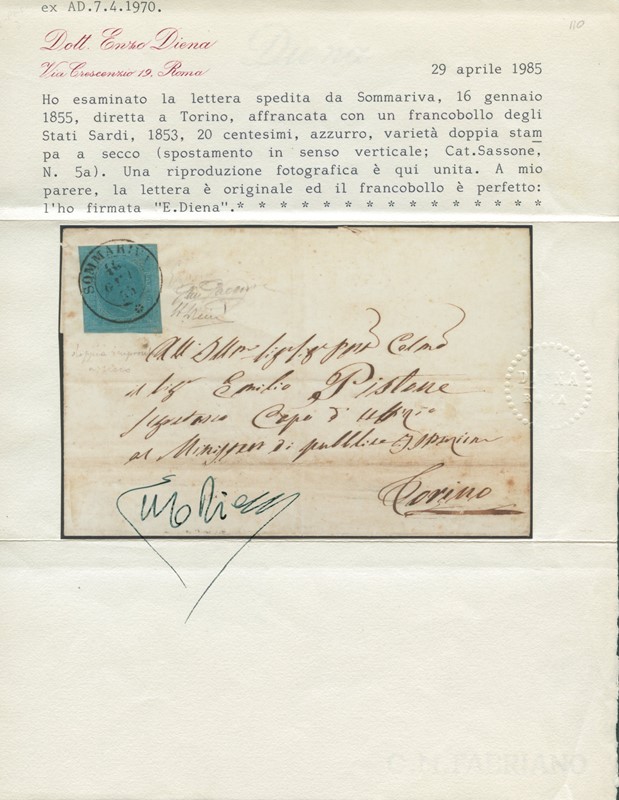 ex AD.7.4.1970.
110
Dott. Enzo Diena
Via Crescenzio 19, Roma
29 aprile 1985
Ho esaminato la lettera spedita da Sommariva, 16 gennaio
1855, diretta a Torino, affrancata con un francobollo degli
Stati Sardi, 1853, 20 centesimi, azzurro, varietà doppia stam
pa a secco (spostamento in senso verticale; Cat.Sassone,
N. 5a). Una riproduzione fotografica è qui unita. A mio
parere, la lettera è originale ed il francobollo è perfetto:
l'ho firmata "E.Diena".* * * * * * * * * * * * * * *
SOMMARIVA
16
GEN
55
il Sig
Emilio Pistone
Segretario Capo d'uffizio
al Ministero di pubblica Istruzione
Torino
DIENA
ROMA
Enzo Diena
C.M.FABRIANO